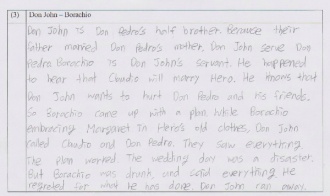 (3) Don John – Borachio
Don John is Don Pedro's half brother. Because their
father married Don Pedro's mother. Don John serve Don
Pedro. Borachio is Don John's servant. He happened
to hear that Claudio will marry Hero. He knows that
Don John wants to hurt Don Pedro and his friends.
So Borachio came up with a plan. While Borachio
embracing Margaret in Hero's old clothes, Don John
called Claudio and Don Pedro. They saw everything.
The plan worked. The wedding day was a disaster.
But Borachio was drunk, and said everything. He
regreted for what he has done. Don John ran away.